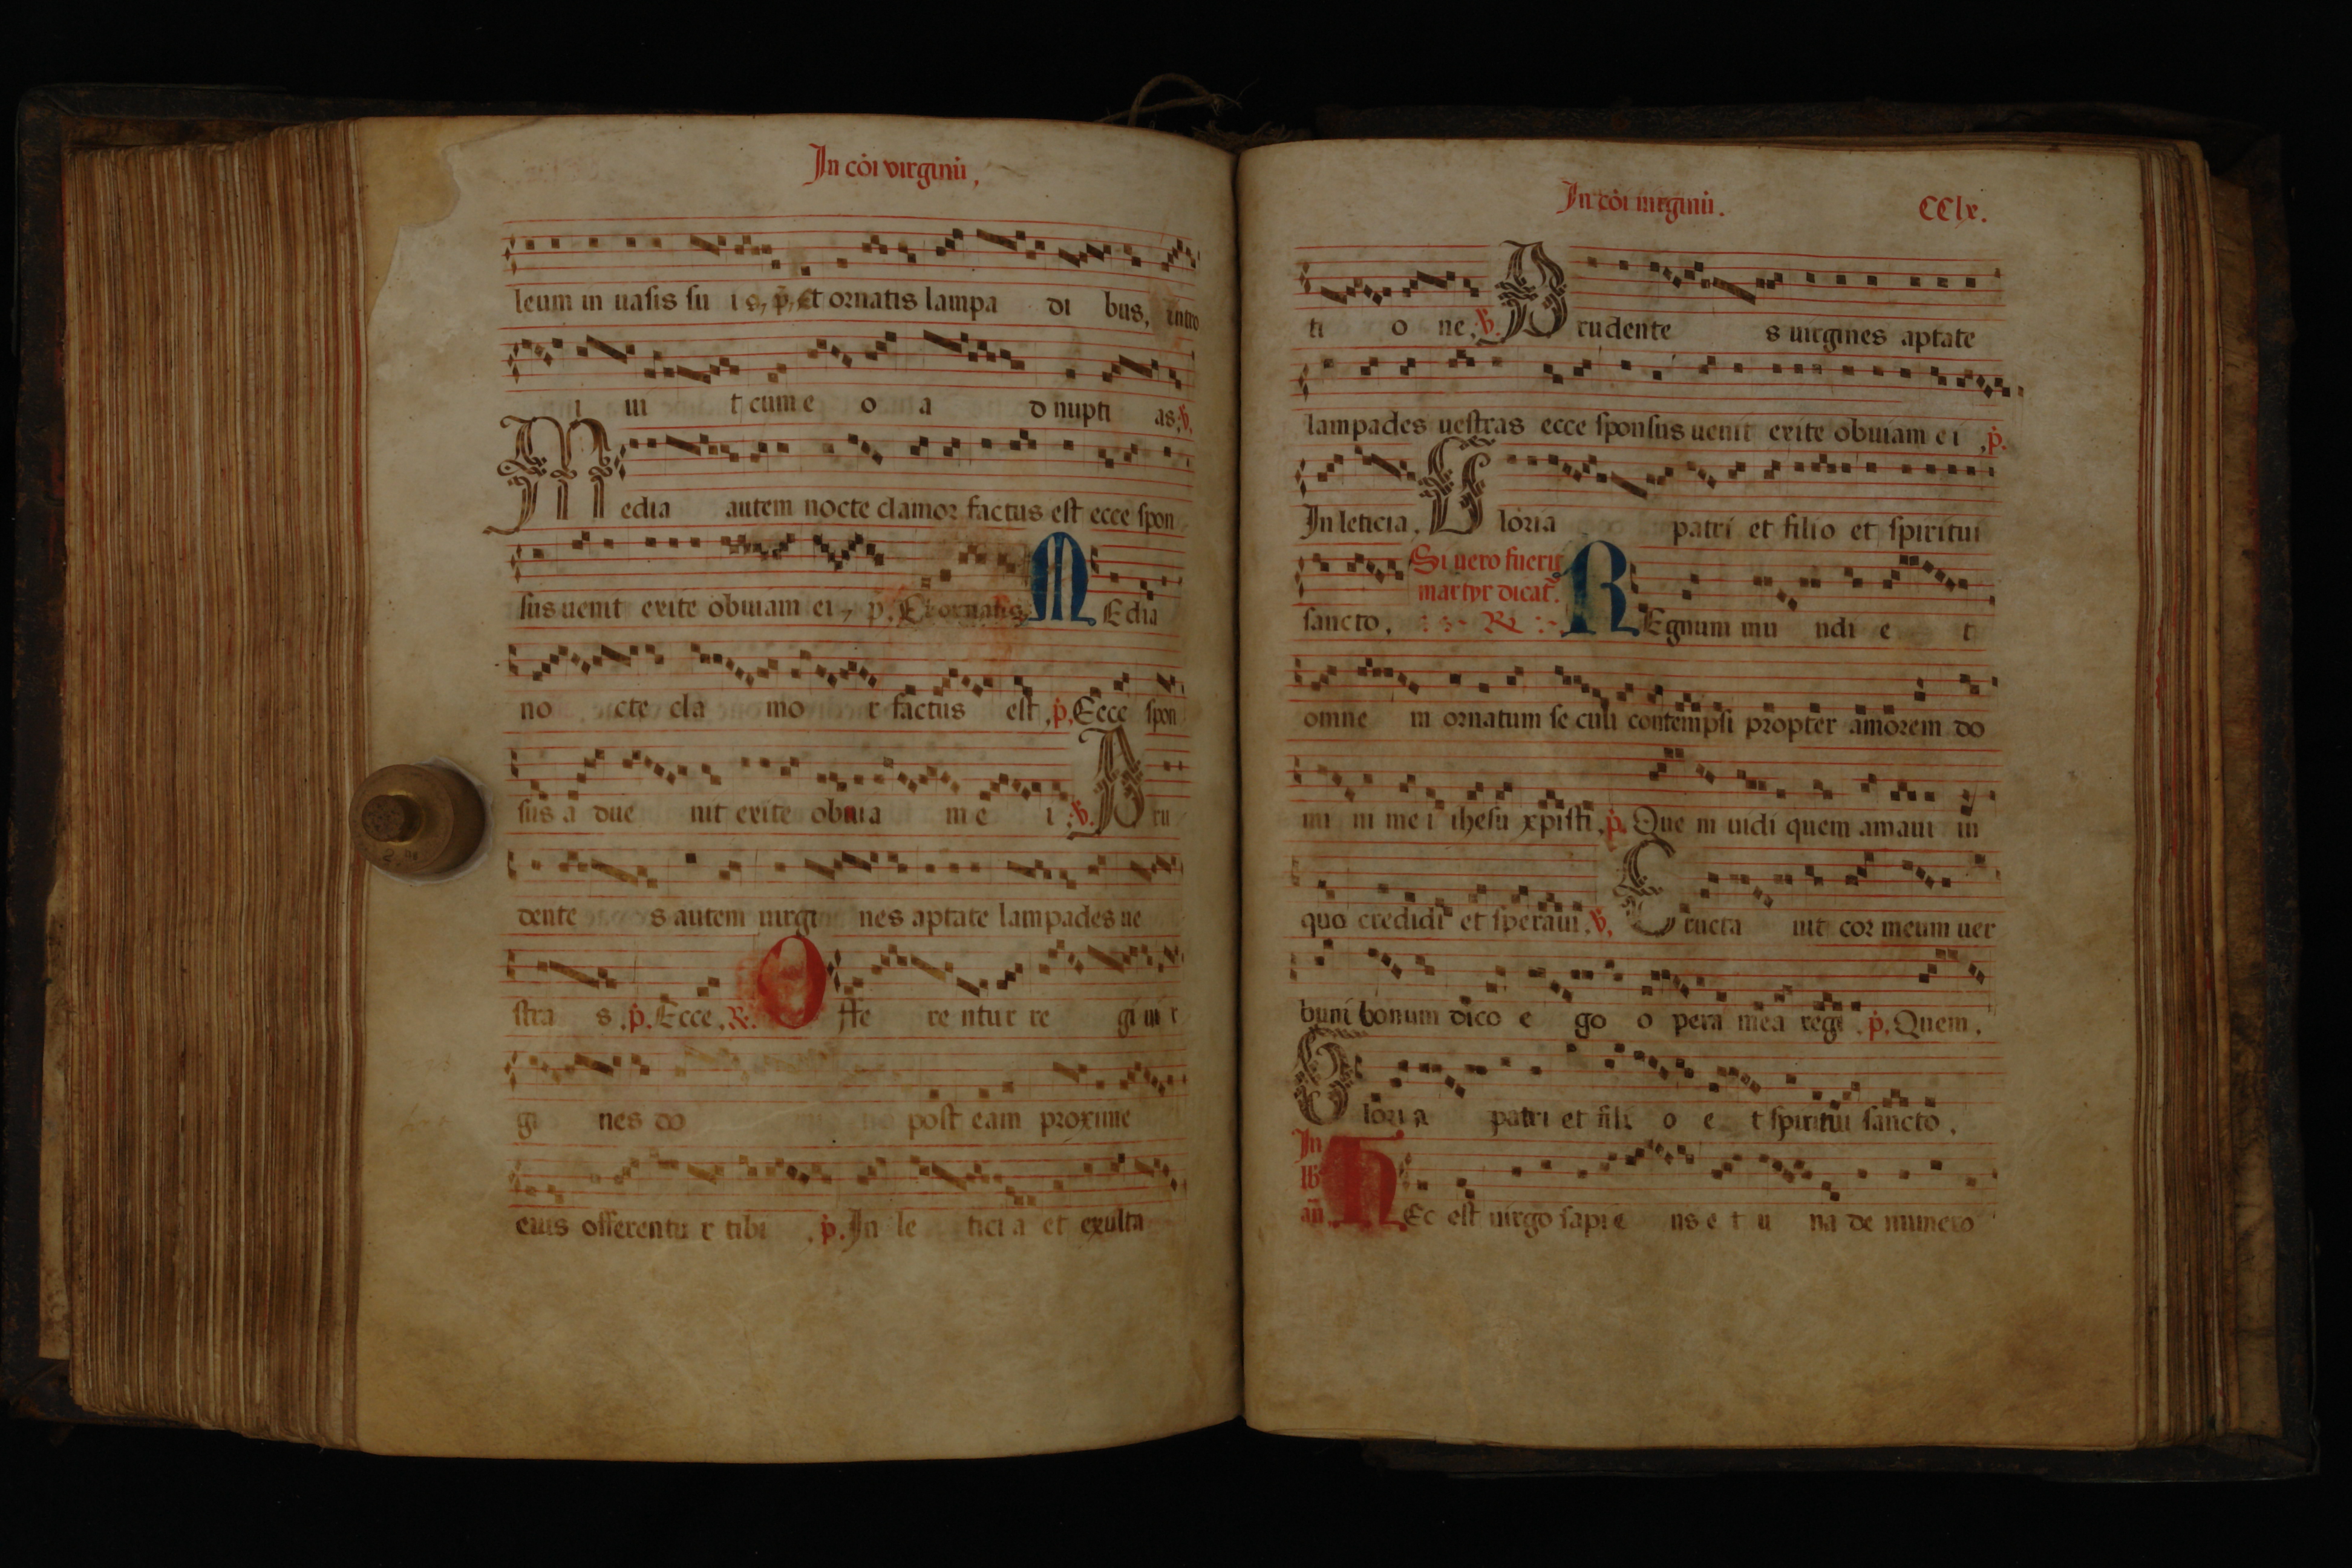 In cōi virginū,
leum in uasis su i s, p. Et ornatis lampa di bus, intro
i ui t cum e o a d nupti as. v.
Media autem nocte clamor factus est ecce spon
sus uenit exite obuiam ei, p. Et ornatis. MEdia
no cte cla mo r factus est, p. Ecce spon
sus a due nit exite obuia m e i. v. Pru
dente s autem uirgi nes aptate lampades ue
stra s. p. Ecce. R. Offe re ntur re gi ui r
gi nes do post eam proxime
eius offerentu r tibi . p. In le tici a et exulta
In cōi uirginū. CClx.
ti o ne. v. Prudente s uirgines aptate
lampades uestras ecce sponsus uenit exite obuiam ei , p.
In leticia. Gloria patri et filio et spiritui
sancto. Si uero fuerit martyr dicat. R. REgnum mu ndi e t
omne m ornatum se culi contempsi propter amorem do
mi ni me i ihesu xpisti. p. Que m uidi quem amaui in
quo credidi et speraui. v. Eructa uit cor meum uer
bum bonum dico e go o pera mea regi . p. Quem.
Gloria patri et fili o e t spiritui sancto.
In
lb
an HEc est uirgo sapie ns e t u na de numero